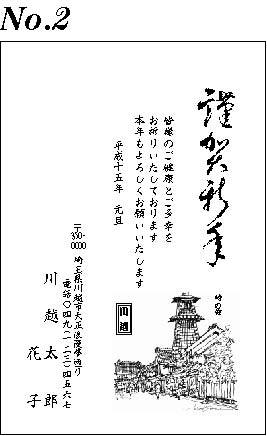 No.2
謹賀新年
皆様のご健康とご多幸を
お祈りいたしております
本年もよろしくお願いいたします
平成十五年　元旦
時の鐘
川越
〒350-0000
埼玉県川越市大正浪漫夢通り
電話〇四九(一二三)四五六七
川越太郎
花子